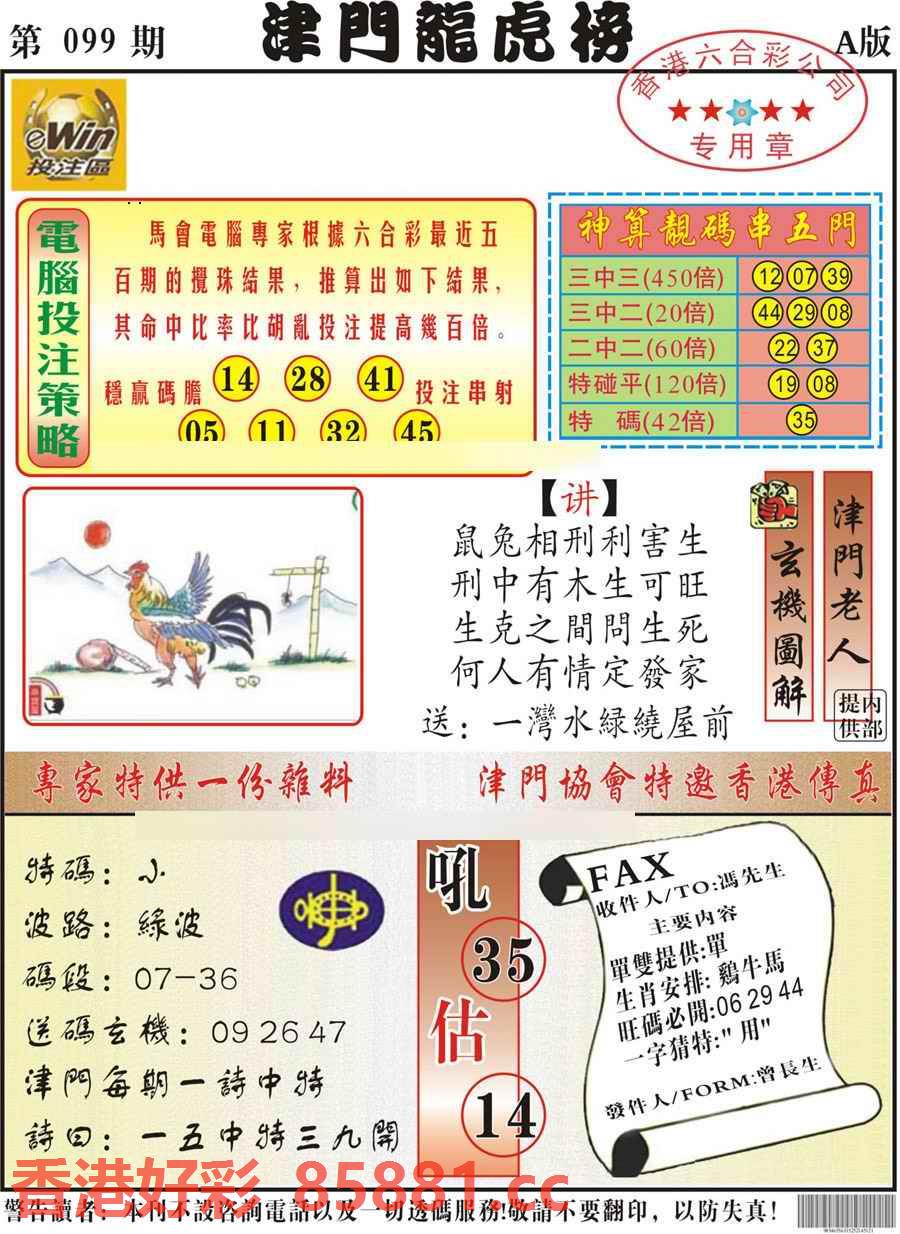 第 099 期
津門龍虎榜
A版
香港六合彩公司
专用章
eWin
投注區
電腦投注策略
馬會電腦專家根據六合彩最近五
百期的攪珠結果，推算出如下結果，
其命中比率比胡亂投注提高幾百倍。
穩贏碼膽 14 28 41 投注串射
05 11 32 45
神算靚碼串五門
三中三(450倍) 12 07 39
三中二(20倍) 44 29 08
二中二(60倍) 22 37
特碰平(120倍) 19 08
特 碼(42倍) 35
【讲】
鼠兔相刑利害生
刑中有木生可旺
生克之間問生死
何人有情定發家
送：一灣水緑繞屋前
玄機圖解
津門老人
内部提供
專家特供一份雜料
津門協會特邀香港傳真
特碼：小
波路：綠波
碼段：07-36
送碼玄機：09 26 47
津門每期一詩中特
詩曰：一五中特三九開
吼
35
估
14
FAX
收件人/TO:馮先生
主要内容
單雙提供:單
生肖安排: 鷄牛馬
旺碼必開:06 29 44
一字猜特:"用"
發件人/FORM:曾長生
香港好彩 85881.cc
警告讀者：本刊不設咨詢電話以及一切透碼服務!敬請不要翻印，以防失真!